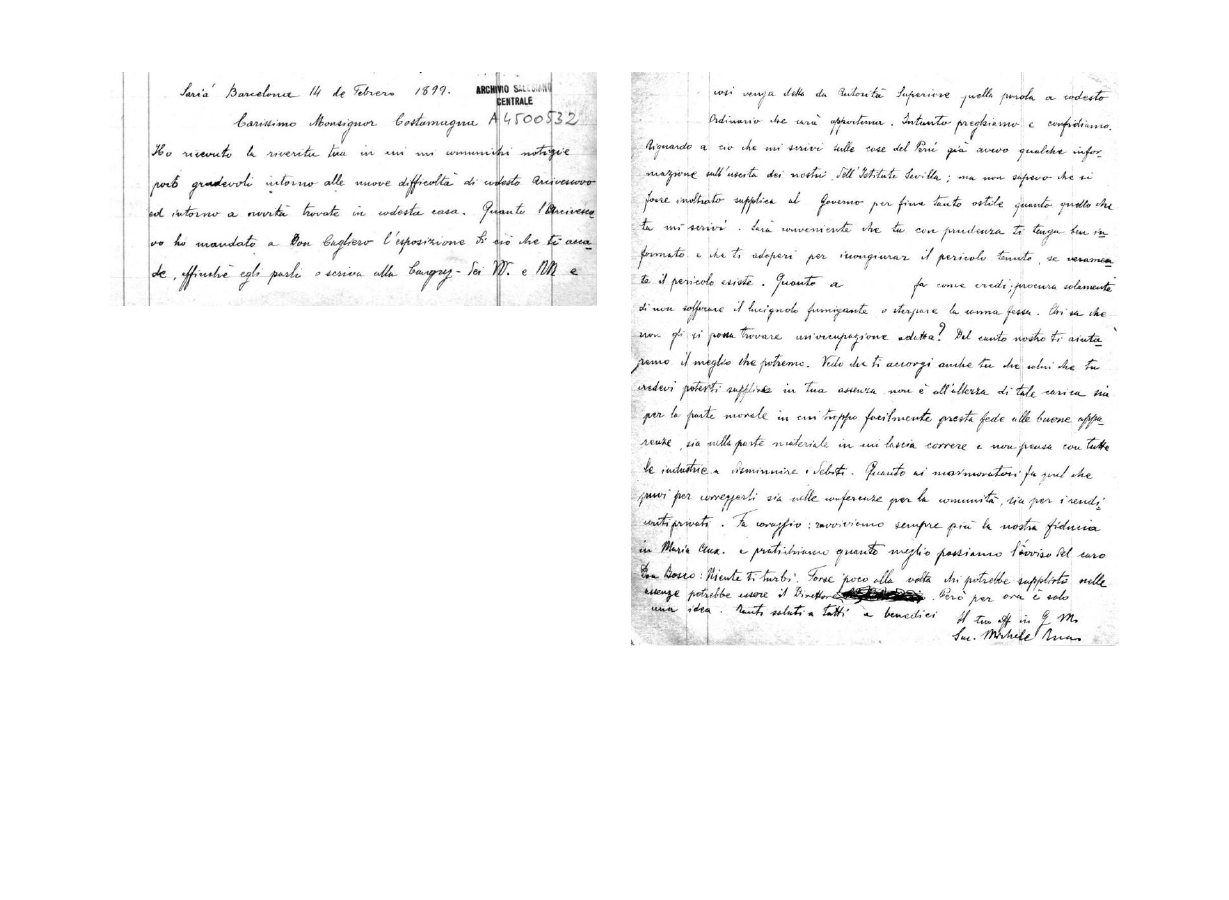 Sarià Barcelona 14 de Febrero 1899.
ARCHIVIO SALESIANO
CENTRALE
A4500532
Carissimo Monsignor Costamagna
Ho ricevuto la riverita tua in cui mi comunichi notizie
poco gradevoli intorno alle nuove difficoltà di codesto Arcivescovo
ed intorno a novità trovate in codesta casa. Quanto l'Arcivesco-
vo ho mandato a Don Cagliero l'esposizione di ciò che ti acca-
de, affinchè egli parli o scriva alla Congreg- dei VV. e RR e
così venga detta da Autorità Superiore quella parola a codesto
Ordinario che sarà opportuna. Intanto preghiamo e confidiamo.
Riguardo a ciò che mi scrivi sulle cose del Perù già avevo qualche infor-
mazione sull'uscita dei nostri dell'Istituto Sevilla; ma non sapevo che si
fosse inoltrato supplica al Governo per fine tanto ostile quanto quello che
tu mi scrivi. Sarà conveniente che tu con prudenza ti tenga ben in-
formato e che ti adoperi per iscongiurar il pericolo temuto, se veramen-
te il pericolo esiste. Quanto a fa come credi; procura solamente
di non soffocare il lucignolo fumigante o sterpare la canna fessa. Chi sa che
non gli si possa trovare un'occupazione adatta? Dal canto nostro ti aiute-
remo il meglio che potremo. Vedo che ti accorgi anche tu che colui che tu
credevi poterti supplire in tua assenza non è all'altezza di tale carica sia
per la parte morale in cui troppo facilmente presta fede alle buone appa-
renze, sia nella parte materiale in cui lascia correre e non pensa con tutte
le industrie a diminuire i debiti. Quanto ai mormoratori fa quel che
puoi per correggerli sia nelle conferenze per la comunità, sia per i rendi-
conti privati. Fa coraggio: ravviviamo sempre più la nostra fiducia
in Maria Aus. e pratichiamo quanto meglio possiamo l'avviso del caro
Don Bosco: Niente ti turbi. Forse poco alla volta chi potrebbe supplirti nelle
assenze potrebbe essere il Direttore. Però per ora è solo
una idea. Tanti saluti a tutti a benedici
Il tuo Aff in G M.
Sac. Michele Rua